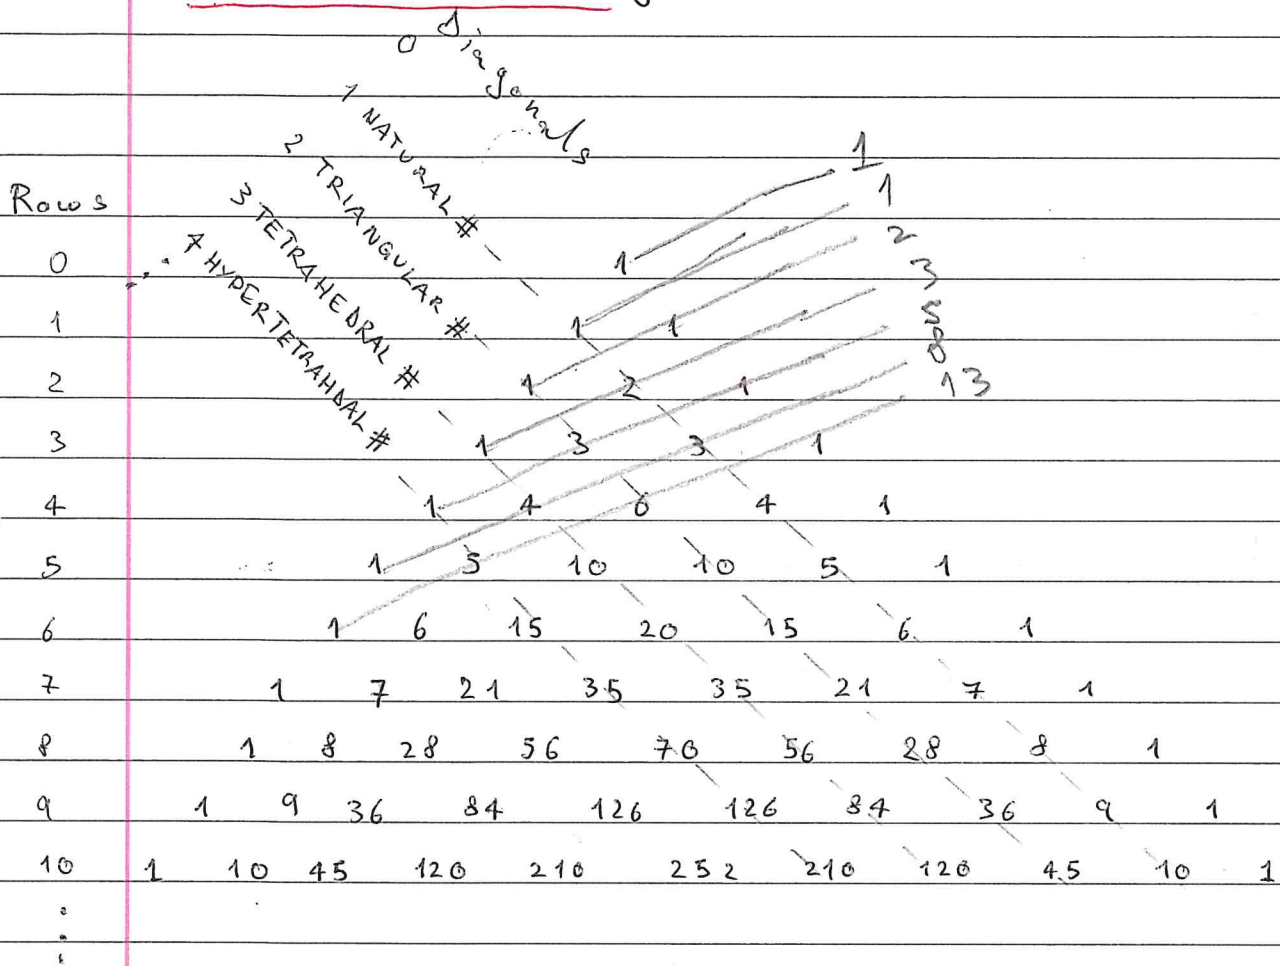 0 Diagonals
1 NATURAL #
2 TRIANGULAR #
3 TETRAHEDRAL #
7 HYPERTETRAHDAL #
Rows
1
1
2
3
5
8
13
0 1
1 1 1
2 1 2 1
3 1 3 3 1
4 1 4 6 4 1
5 1 5 10 10 5 1
6 1 6 15 20 15 6 1
7 1 7 21 35 35 21 7 1
8 1 8 28 56 70 56 28 8 1
9 1 9 36 84 126 126 84 36 9 1
10 1 10 45 120 210 252 210 120 45 10 1